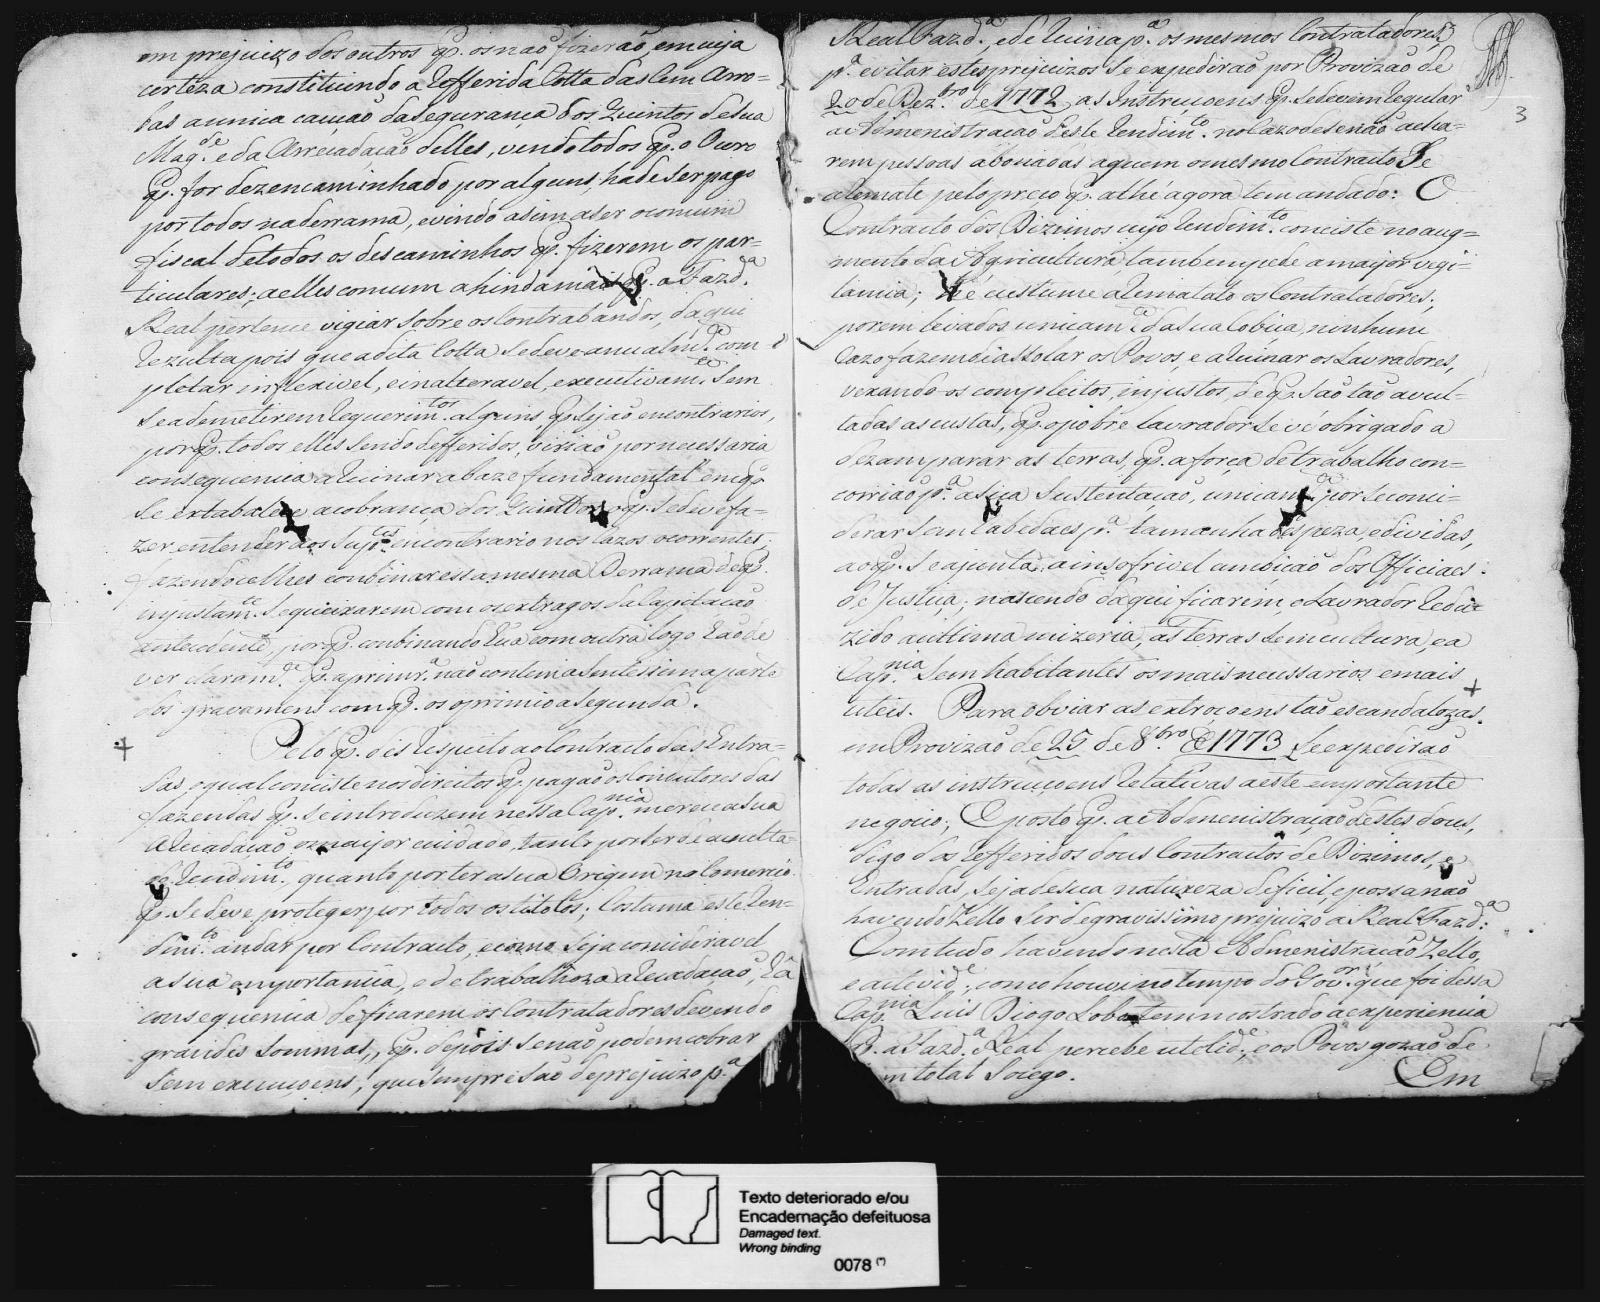 em prejuizo dos outros q̃. os naõ fizeraõ, em cuja
certeza constituindo a Refferida Cotta das Cem Arro=
bas a unica cauçaõ da segurança dos Quintos de Sua
Mag.de e da Arrecadaçaõ delles, vendo todos q̃. o Ouro
q̃. for dezencaminhado por alguns, hade ser pago
por todos na derrama, e vindo asim a ser o comum
fiscal de todos os descaminhos q̃. fizerem os par=
ticulares; a elles comum ahinda mais q̃. a Fazd.a
Real pertence vigiar sobre os Contrabandos, daqui
Rezulta pois que a dita Cotta se deve anualm.te com
pletar inflexivel, e inalteravel, executivam.te Sem
se ademetirem Requerim.tos alguns, q̃. sejaõ encontrarios,
porq̃. todos elles sendo defferidos, viriaõ por necessaria
consequencia a Ruinar a baze fundamental em q̃.
se extabalece a cobrança dos Quinttos, q̃. se deve fa=
zer entender aos Sup.tes encontrario nos cazos ocorrentes;
fazendo-lhes conbinar essa mesma Derrama de q̃.
injustam.te se queixarem com os extragos da Capitaçaõ
antecedente, porq̃. conbinando hũa com outra logo haõ de
ver claram.te q̃. a primr.a naõ contem a sentessima parte
dos gravamens com q̃. os oprimio a segunda.
+
Pelo q̃. dis Respeito ao Contracto das Entra=
das, o qual conciste nos direitos q̃. pagaõ os Condutores das
fazendas q̃. se introduzem nessa Cap.nia merece a sua
Arecadaçaõ o maijor cuidado, tanto por ser de avulta=
do Rendim.to quanto por ter a sua Origem no Comercio
q̃. se deve proteger por todos os titolos; Costuma este Ren=
dim.to andar por Contracto, e como seja concideravel
a sua emportancia, e de trabalhoza aRecadaçaõ, hã
consequencia de ficarem os Contratadores devendo
grandes sommas, q̃. depois se naõ podem cobrar
sem execuçoens, que sempre saõ de prejuizo p.a
Real Fazd.a, e de Ruina p.a os mesmos Contratadores,
p.a evitar estes prejuizos se expediraõ por Provizaõ de
20 de Dez.bro de 1772, as Instruçoens q̃. se devem Regular
a Admenistraçaõ deste Rendim.to no cazo de se naõ acha=
rem pessoas abonadas a quem o mesmo Contracto Se
aRemate pelo preço q̃. athé agora tem andado: O
Contracto dos Dizimos cujo Rendim.to conciste no aug=
mento da Agricultura tambem pede a maijor vigi=
lancia; hé custume aRematalo os Contratadores;
porem levados unicam.te da sua Cobiça, ninhum
Cazo fazem de assolar os Povos, e aRuinar os Lavradores,
vexando-os com pleitos injustos, de q̃. saõ taõ avul=
tadas as custas, q̃. o pobre Lavrador se vé obrigado a
dezamparar as terras, q̃. a força de trabalho con=
corriaõ p.a a sua Sustentaçaõ, unicam.te por se conci=
derar sem cabedaes p.a tamanha despeza, e dividas,
ao q̃. se ajunta a insofrivel ambiçaõ dos Officiaes
de Justiça; nascendo daqui ficarem, o Lavrador Redu=
zido a ultima mizeria, as Terras sem cultura, e a
Cap.nia Sem habitantes os mais necessarios e mais
uteis. Para obviar as extroçoens taõ escandalozas +
em Provizaõ de 25 de 8.bro de 1773 Se expediraõ
todas as instruçoens Relativas a este emportante
negocio; E posto q̃. a Admenistraçaõ destes dous,
digo dos Refferidos dous Contractos de Dizimos, e
Entradas, seja de sua naturéza deficil, e possa naõ
havendo Zello ser de gravissimo prejuizo a Real Fazd.a:
Comtudo havendo nesta Admenistraçaõ Zello,
e actevid.e, como houve no tempo do Gov.or que foi dessa
Cap.nia Luis Diogo Lobo tem mostrado a experiencia
q̃. a Fazd.a Real percebe utelid.e, e os Povos gozaõ de
hum total Socego.
Em
3
Texto deteriorado e/ou
Encadernação defeituosa
Damaged text.
Wrong binding
0078 (*)